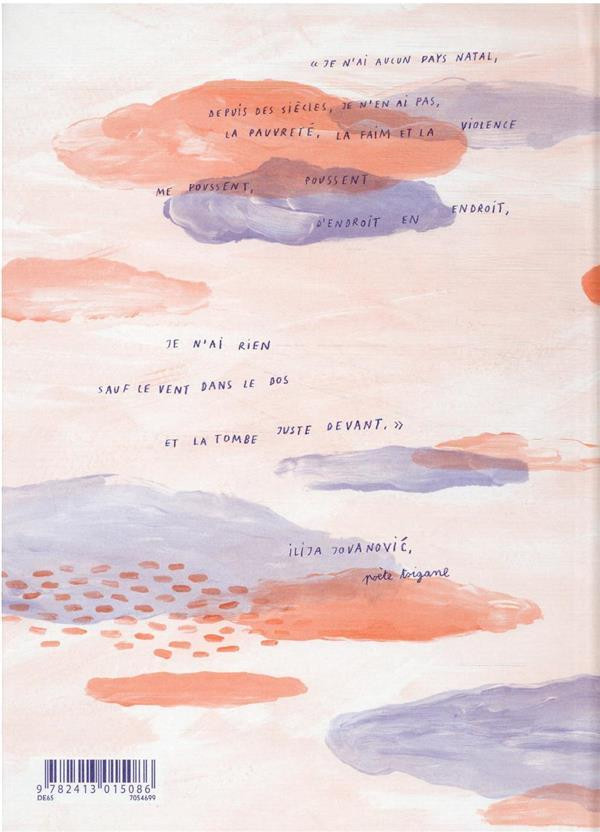 « JE N'AI AUCUN PAYS NATAL,
DEPUIS DES SIÈCLES, JE N'EN AI PAS,
LA PAUVRETÉ, LA FAIM ET LA VIOLENCE
ME POUSSENT, POUSSENT
D'ENDROIT EN ENDROIT,
JE N'AI RIEN
SAUF LE VENT DANS LE DOS
ET LA TOMBE JUSTE DEVANT. »
ILIJA JOVANOVIĆ,
poète tsigane
9 782413 015086
DE65 7054699